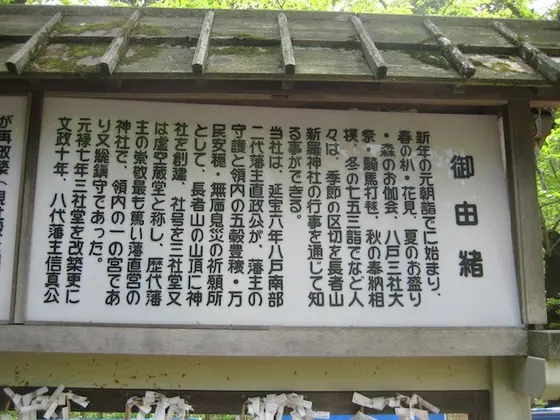 御由緒
新年の元朝詣でに始まり、
春の杁・花見、夏のお盛り
・森のお伽会、八戸三社大
祭・騎馬打毬、秋の奉納相
撲、冬の七五三詣でなど人
々は、季節の区切を長者山
新羅神社の行事を通じて知
る事ができる。
当社は、延宝六年八戸南部
二代藩主直政公が、藩主の
守護と領内の五穀豊穣・万
民安穏・無病息災の祈願所
として、長者山の山頂に神
社を創建、社号を三社堂又
は虚空蔵堂と称し、歴代藩
主の崇敬最も篤い藩直営の
神社で、領内の一の宮であ
り又総鎮守であった。
元禄七年三社堂を改築更に
文政十年、八代藩主信真公
が再改築